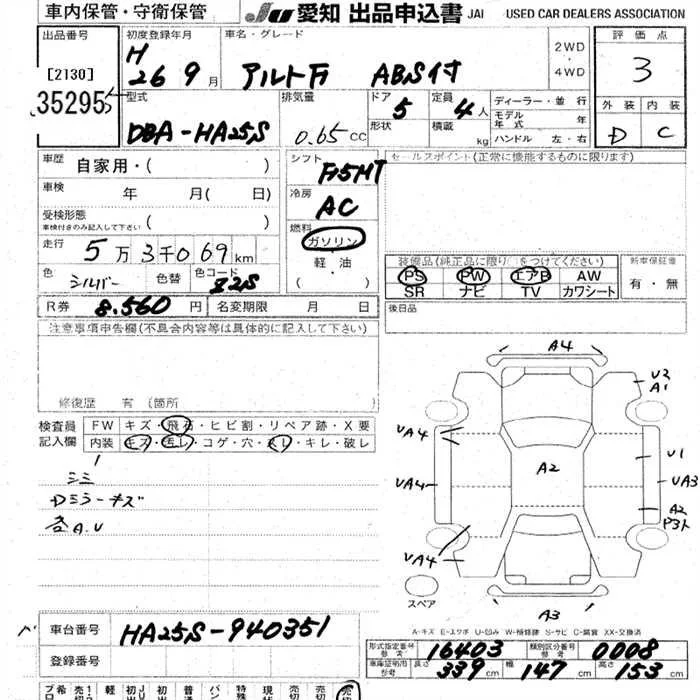 車内保管・守衛保管
JU 愛知 出品申込書 JAI USED CAR DEALERS ASSOCIATION
出品番号 初度登録年月 車名・グレード 2WD・4WD 評価点
[2130] H 26 9月 アルト ABS付 3
35295 型式 排気量 ドア 5 定員 4人 ディーラー・並行 外装 内装
DBA-HA25S 0.65cc 形状 積載 kg モデル年式 年 ハンドル 左・右 D C
車歴 自家用・( ) シフト F5MT セールスポイント(正常に機能するものに限ります)
車検 年 月( 日) 冷房 AC
受検形態 車検付きのみ記入して下さい ( ) 燃料 ガソリン
走行 5万3千069km 軽・油 ( )
装備品(純正品に限り をつけてください) 新車保証書
色 シルバー 色替 色コード Z2S PS PW エアB AW 有・無
SR ナビ TV カワシート
R券 8,560円 名変期限 月 日 後日品
注意事項申告欄(不具合内容等は具体的に記入して下さい)
修復歴 有(箇所
検査員 FW キズ・飛石・ヒビ割・リペア跡・X要
記入欄 内装 キズ・汚レ・コゲ・穴・スレ・キレ・破レ
シミ
Dミラーキズ
各A.U
A4
U2
A1
UA4
A2
U1
UA4
UA3
A2
UA4
スペア
A3
A-キズ E-エクボ U-凹み W-補修跡 S-サビ C-腐食 XX-交換済
車台番号 HA25S-940351
登録番号
形式指定番号 参考 16403 類別区分番号 参考 0008
車庫証明用 参考 長さ 339cm 幅 147cm 高さ 153cm